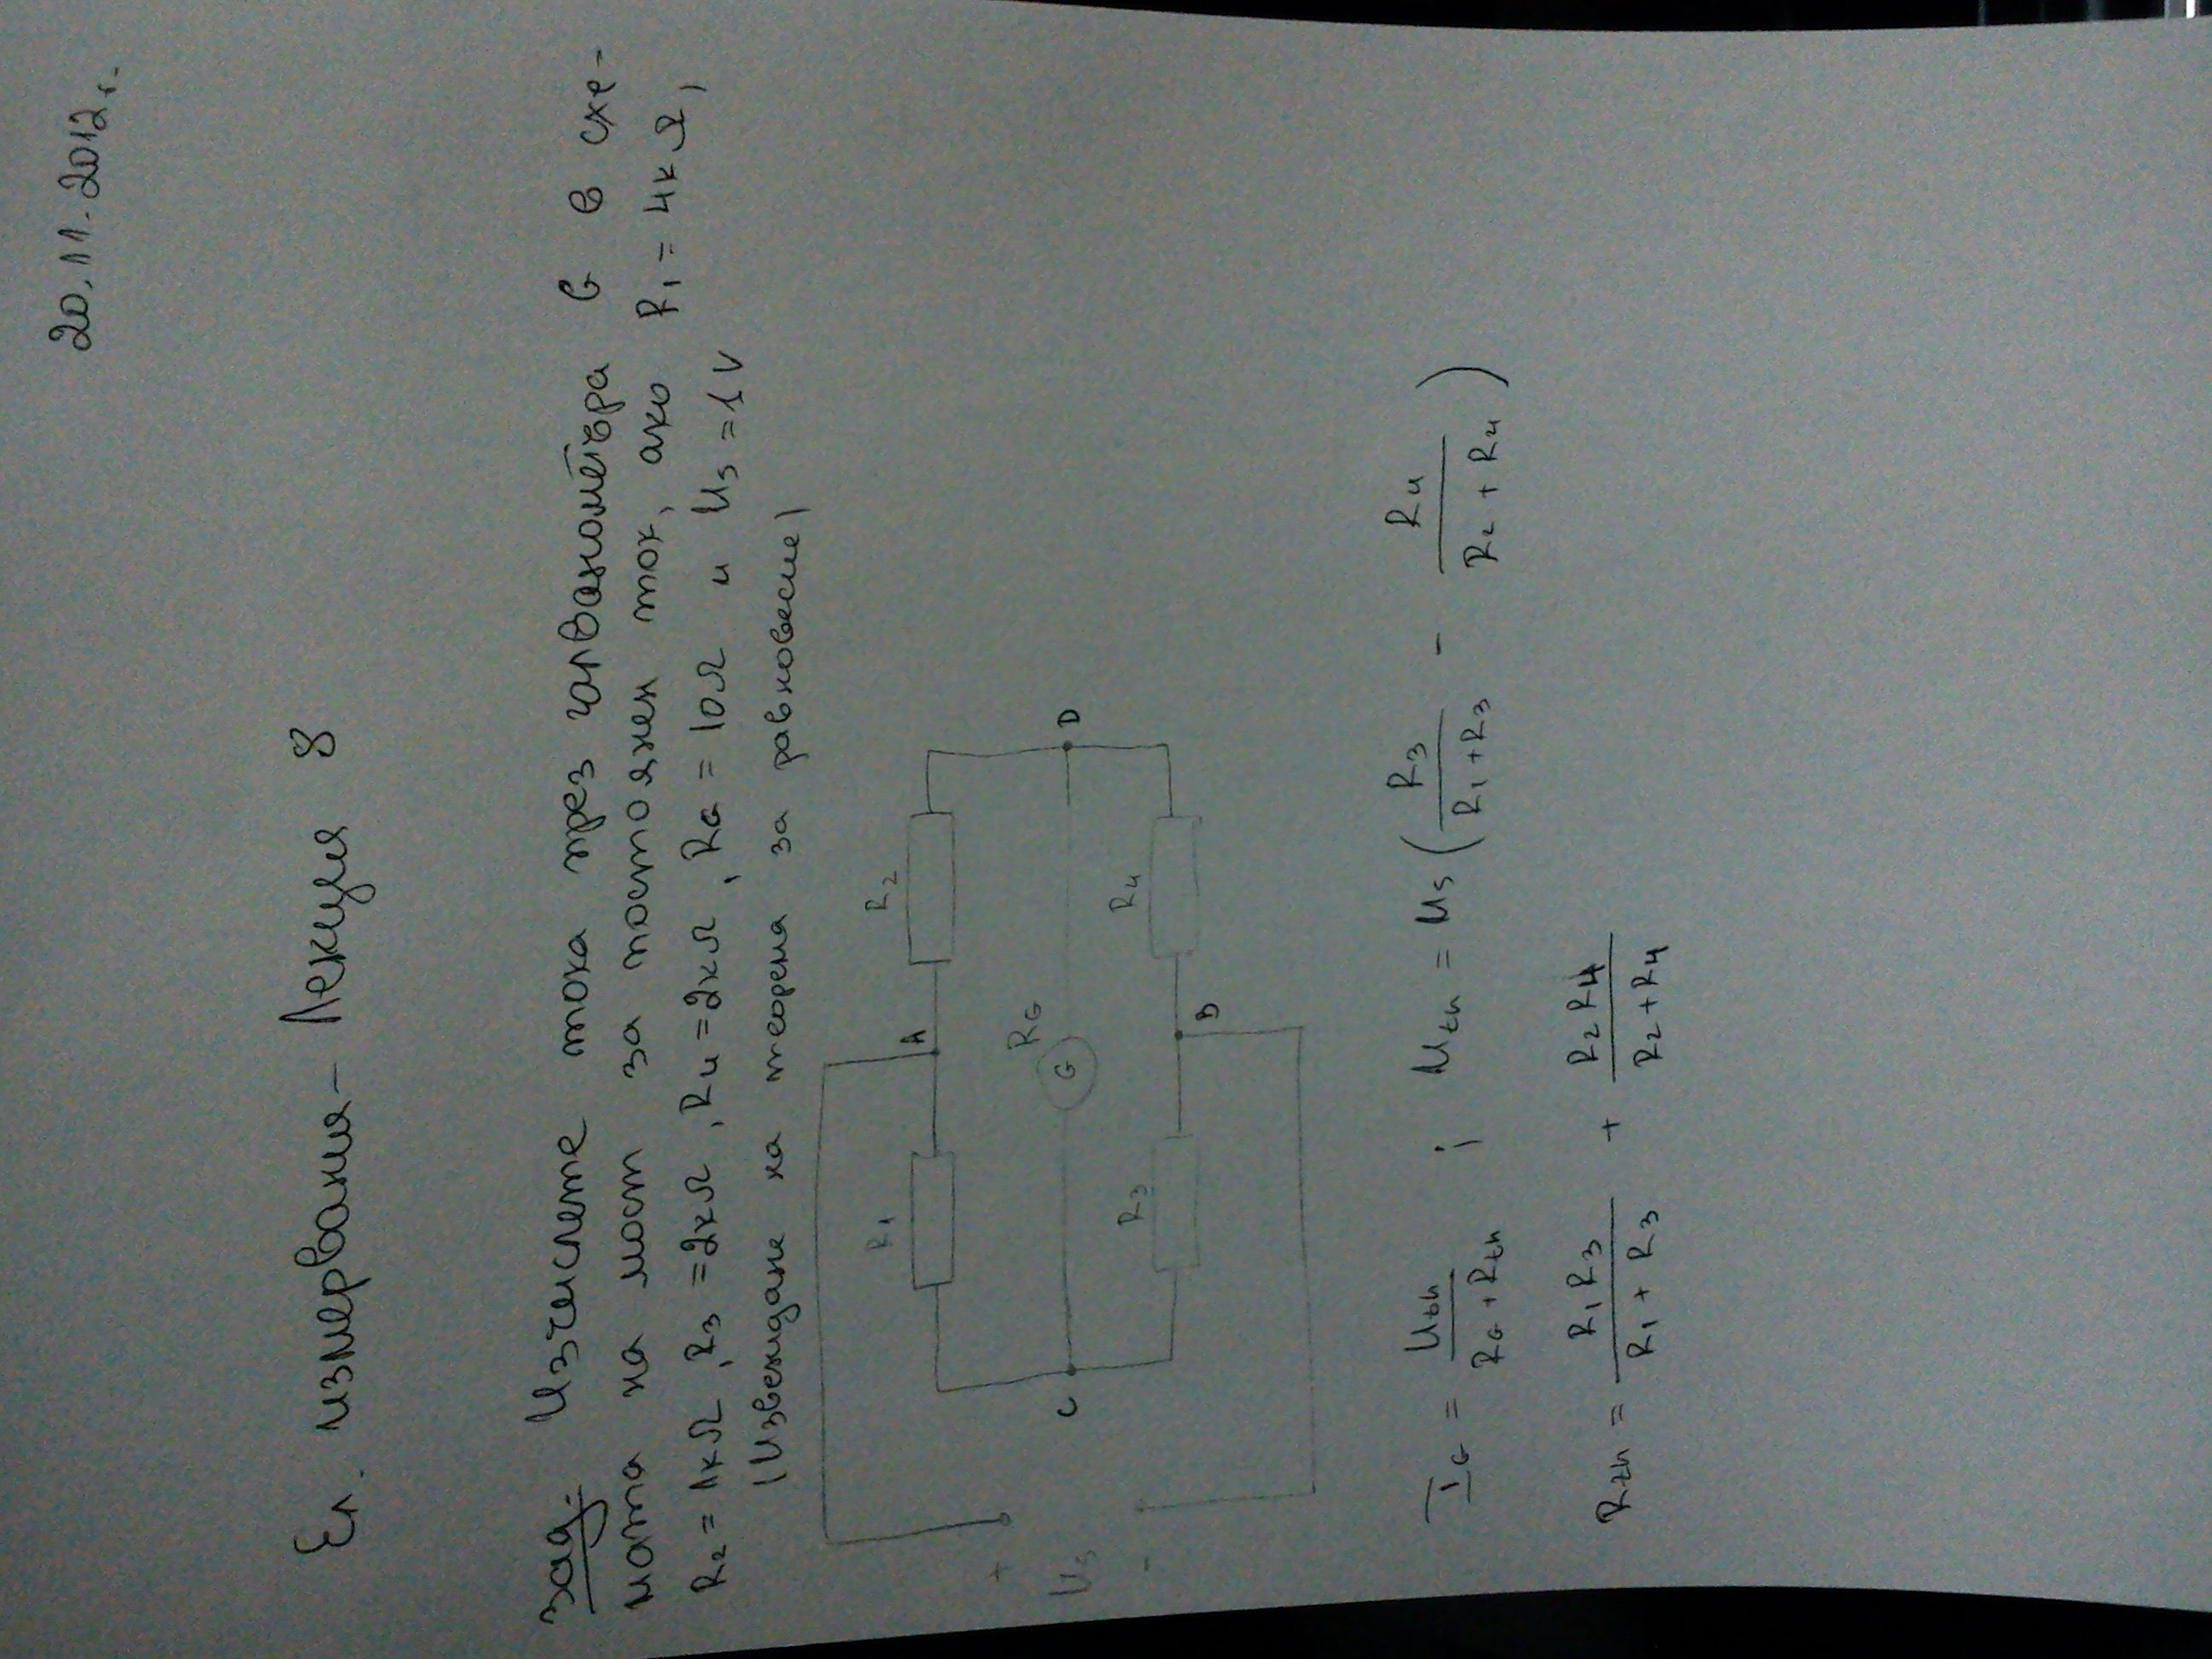 20.11.2012г.
Ел. измервания – Лекция 8
зад. Изчислете тока през галванометъра G в схе-
мата на мост за постоянен ток, ако R₁ = 4кΩ,
R₂ = 1кΩ, R₃ = 2кΩ, R₄ = 2кΩ, RG = 10Ω и Us = 1V
(Извеждане на теорема за равновесие)
R₁ A R₂
RG
C G D
R₃ B R₄
+
Us
-
IG = Uth / (RG + Rth) ; Uth = Us (R₃ / (R₁ + R₃) - R₄ / (R₂ + R₄))
Rth = R₁R₃ / (R₁ + R₃) + R₂R₄ / (R₂ + R₄)